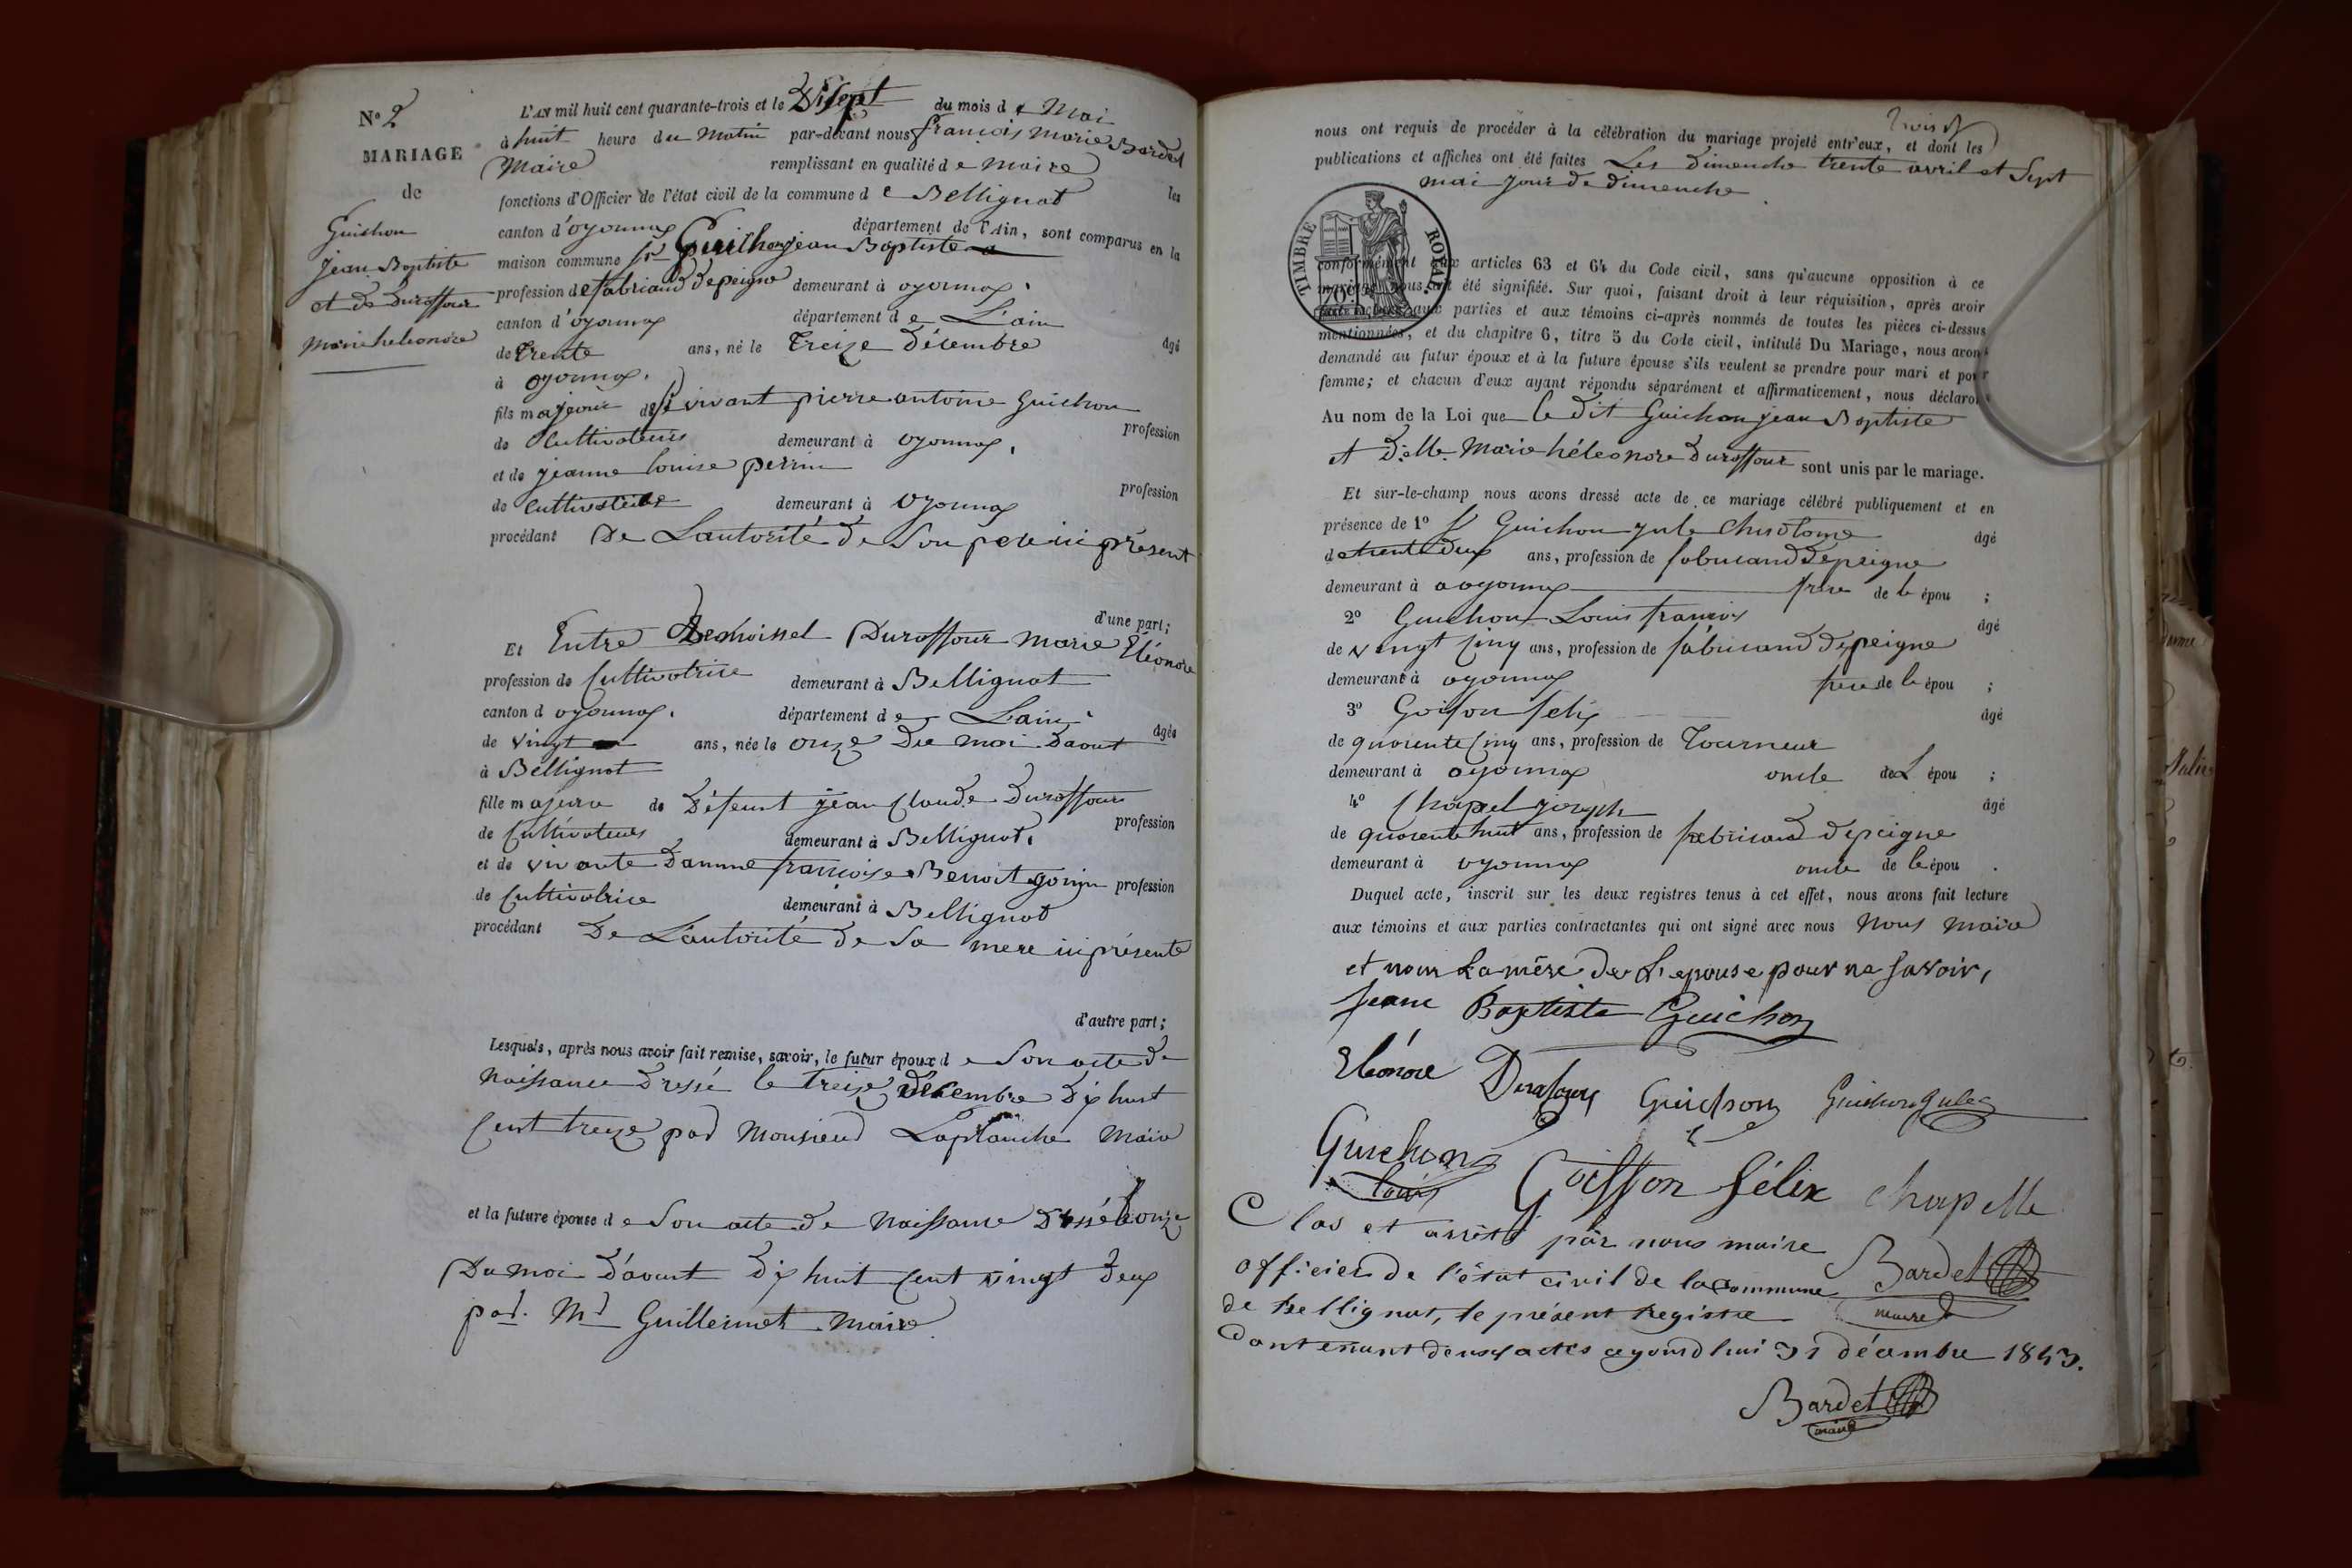 No 2
MARIAGE
de
Guichon
Jean Baptiste
et de Duraffour
Marie heleonore
L'AN mil huit cent quarante-trois et le Disept du mois de Mai
à huit heure du Matin par-devant nous françois Marie Bardet
Maire remplissant en qualité de Maire les
fonctions d'Officier de l'état civil de la commune de Bellignat
canton d'oyonnax département de l'Ain, sont comparus en la
maison commune Sr Guichon jean Baptiste
profession de fabricand depeigne demeurant à oyonnax.
canton d'oyonnax département de L'ain
âgé
de trente ans, né le Treize Décembre
à oyonnax.
fils majeur de vivant pierre antoine Guichon
profession
de Cultivateur demeurant à oyonnax.
et de jeanne louise perrin
profession
de Cultivatrice demeurant à oyonnax
procédant De Lautorité de Son pere ici présent
d'une part;
Et Entre Demoissel Duraffour Marie Eléonore
profession de Cultivatrice demeurant à Bellignat
canton d oyonnax. département de L'ain
âgée
de vingt ans, née le onze Du moi Daout
à Bellignat
fille majeure de Défeunt jean Claude Duraffour
profession
de Cultivateur demeurant à Bellignat.
et de vivante Damme françoise Benoit gonin profession
de Cultivatrice demeurant à Bellignat
procédant De L'autorité de Sa mere ici présente
d'autre part;
Lesquels, après nous avoir fait remise, savoir, le futur époux de Son acte de
Naissance Dressé le treize Décembre Dix huit
Cent treize par Monsieur Laplanche Maire
et la future épouse de Son acte de Naissance Dressé le onze
Du moi D'aout Dix huit Cent vingt Deux
par Mr Guillermet Maire
nous ont requis de procéder à la célébration du mariage projeté entr'eux, et dont les
publications et affiches ont été faites Les Dimenche trente avril et Sept
mai jour de dimenche
TIMBRE ROYAL
70 c
conformément aux articles 63 et 64 du Code civil, sans qu'aucune opposition à ce
mariage nous ait été signifiée. Sur quoi, faisant droit à leur réquisition, après avoir
fait lecture aux parties et aux témoins ci-après nommés de toutes les pièces ci-dessus
mentionnées, et du chapitre 6, titre 5 du Code civil, intitulé Du Mariage, nous avons
demandé au futur époux et à la future épouse s'ils veulent se prendre pour mari et pour
femme; et chacun d'eux ayant répondu séparément et affirmativement, nous déclarons
Au nom de la Loi que le dit Guichon jean Baptiste
et D.elle Marie héleonore Duraffour sont unis par le mariage.
Et sur-le-champ nous avons dressé acte de ce mariage célébré publiquement et en
présence de 1o Sr Guichon jule Chrisotome
âgé
de trente deux ans, profession de fabricand depeigne
demeurant à aoyonnax frere de le épou ;
2o Guichon Louis francois
âgé
de vingt Cinq ans, profession de fabricand depeigne
demeurant à oyonnax frere de le épou ;
3o Goiffon felix
âgé
de quarente Cinq ans, profession de Tourneur
demeurant à oyonnax oncle de L épou ;
4o Chapel joseph
âgé
de quarente huit ans, profession de fabricand depeigne
demeurant à oyonnax oncle de le épou .
Duquel acte, inscrit sur les deux registres tenus à cet effet, nous avons fait lecture
aux témoins et aux parties contractantes qui ont signé avec nous Nous Maire
et nom La mère de L'epouse pour ne Savoir,
Jean Baptiste Guichon
Eléonore Duraffour Guichon Guichon Jules
Guichon Louis Goiffon félix Chapelle
Clos et arrêté par nous maire
officier de l'état civil de la commune Bardet
de bellignat, le présent registre maire
Contenant deux actes aujourdhui 31 décembre 1843.
Bardet
maire